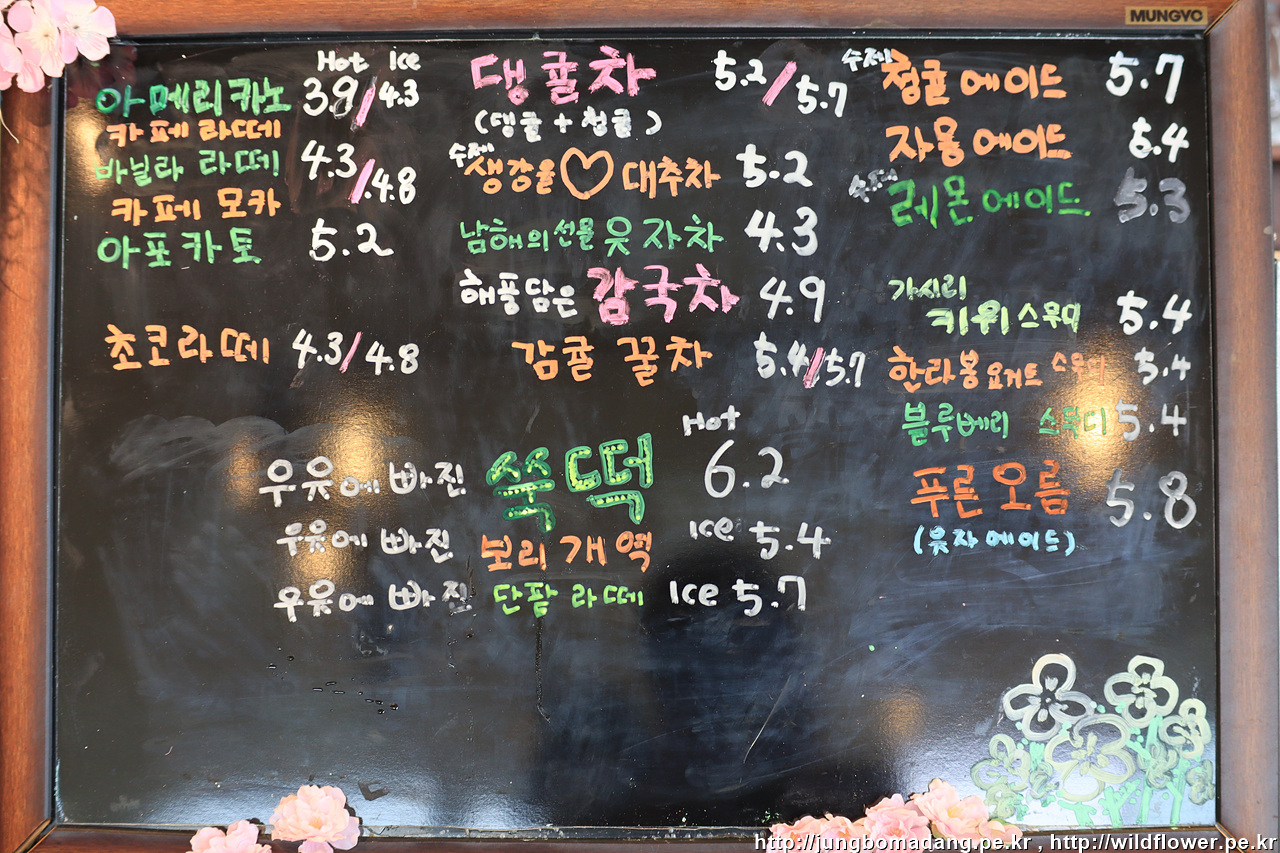 MUNGYO
Hot Ice
아메리카노 3.9/4.3
카페라떼
바닐라 라떼 4.3/4.8
카페 모카
아포카토 5.2
초코라떼 4.3/4.8
댕귤차 5.2/5.7
(댕귤+청귤)
수제 생강을♡대추차 5.2
남해의 선물 유자차 4.3
해풍담은 감국차 4.9
감귤 꿀차 5.4/5.7
Hot
우유에 빠진 쑥떡 6.2
우유에 빠진 보리개역 Ice 5.4
우유에 빠진 단팥 라떼 Ice 5.7
수제 청귤에이드 5.7
자몽에이드 5.4
수제 레몬에이드 5.3
가시리
키위스무디 5.4
한라봉 요거트 스무디 5.4
블루베리 스무디 5.4
푸른오름 5.8
(유자에이드)
http://jungbomadang.pe.kr , http://wildflower.pe.kr